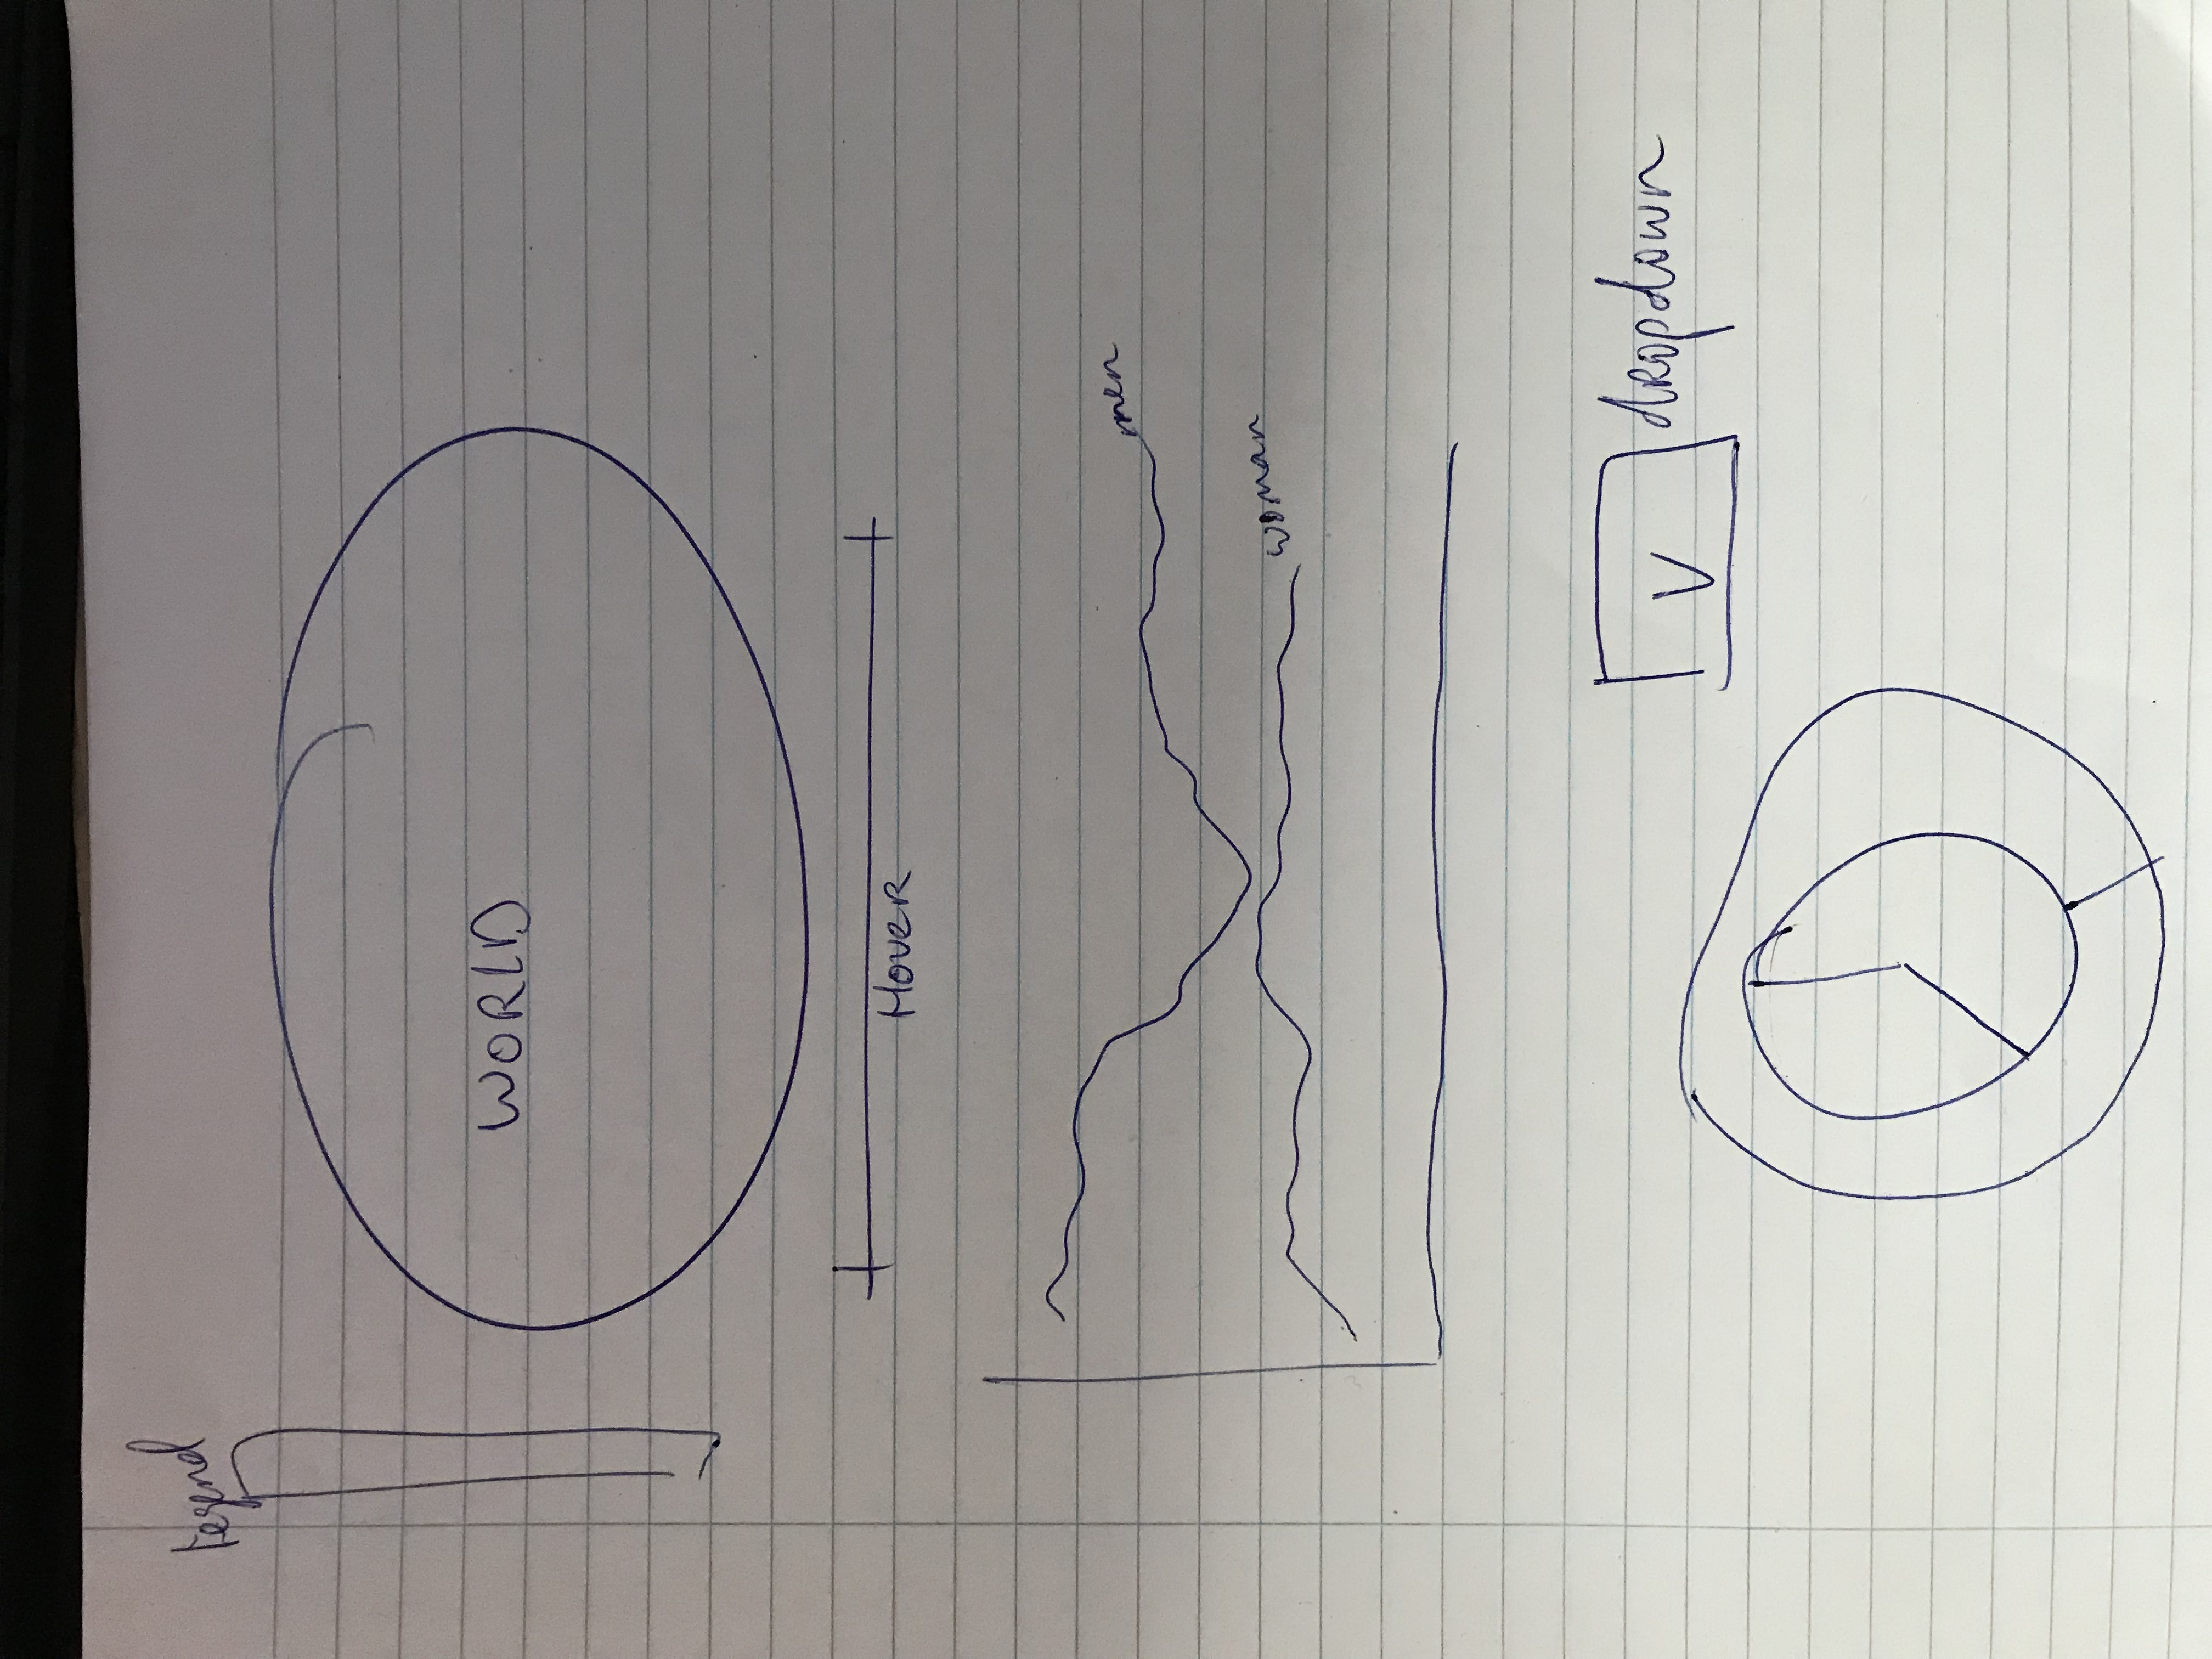 Legend
WORLD
HoveR
men
woman
dropdown